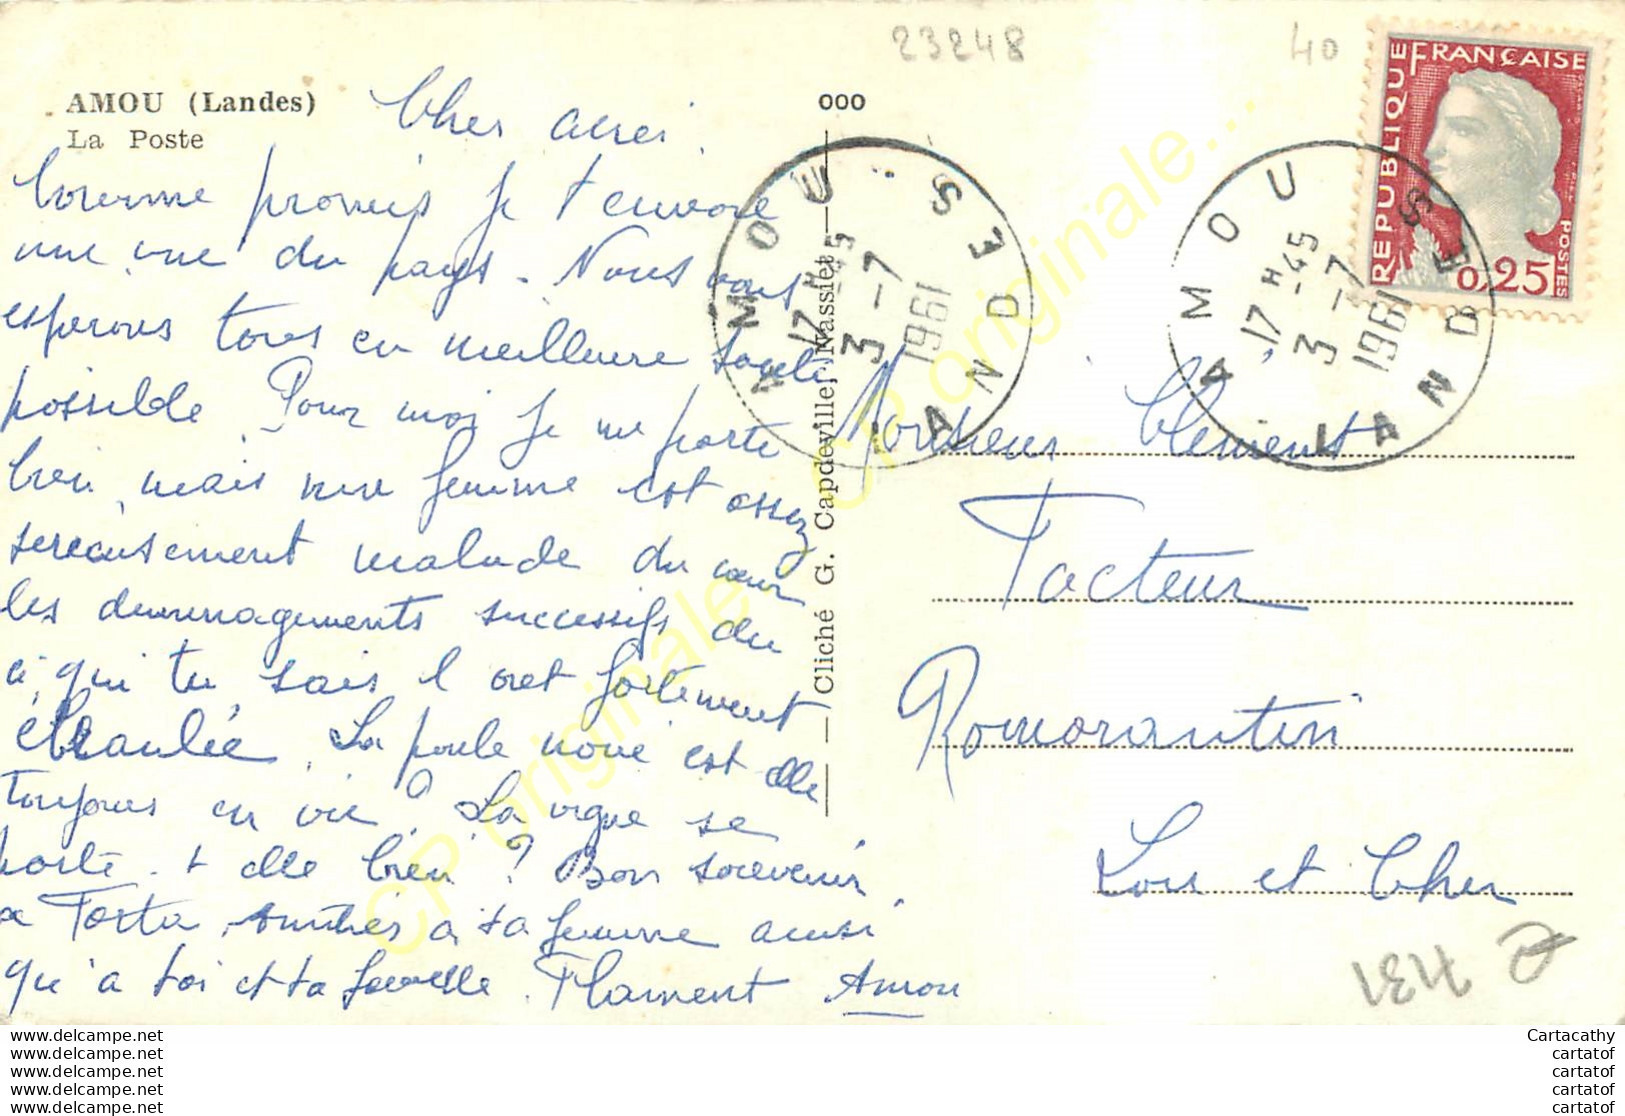 23248
40
AMOU (Landes)
La Poste
000
RÉPUBLIQUE FRANÇAISE
0,25
POSTES
AMOU LANDES
17 H 45
3 - 7
1961
AMOU LANDES
17 H 45
3 - 7
1961
Cliché G. Capdeville, Massiet
Cher ami
Comme promis je t'envoie
une vue du pays. Nous vous
esperons tous en meilleure santé
possible Pour moi je me porte
bien, mais ma femme est assez
serieusement malade du cœur
les demenagements successifs du
a qui tu sais l ont fortement
ébranlée. La poule noire est elle
toujours en vie? La vigne se
porte-t elle bien? Bon souvenir
a Tota. Amitiés a ta femme ainsi
qu'a toi et ta famille. Flament Amou
Monsieur Clement
Facteur
Romorantin
Loir et Cher
4131
www.delcampe.net
www.delcampe.net
www.delcampe.net
www.delcampe.net
www.delcampe.net
Cartacathy
cartatof
cartatof
cartatof
cartatof
CP originale
CP originale...